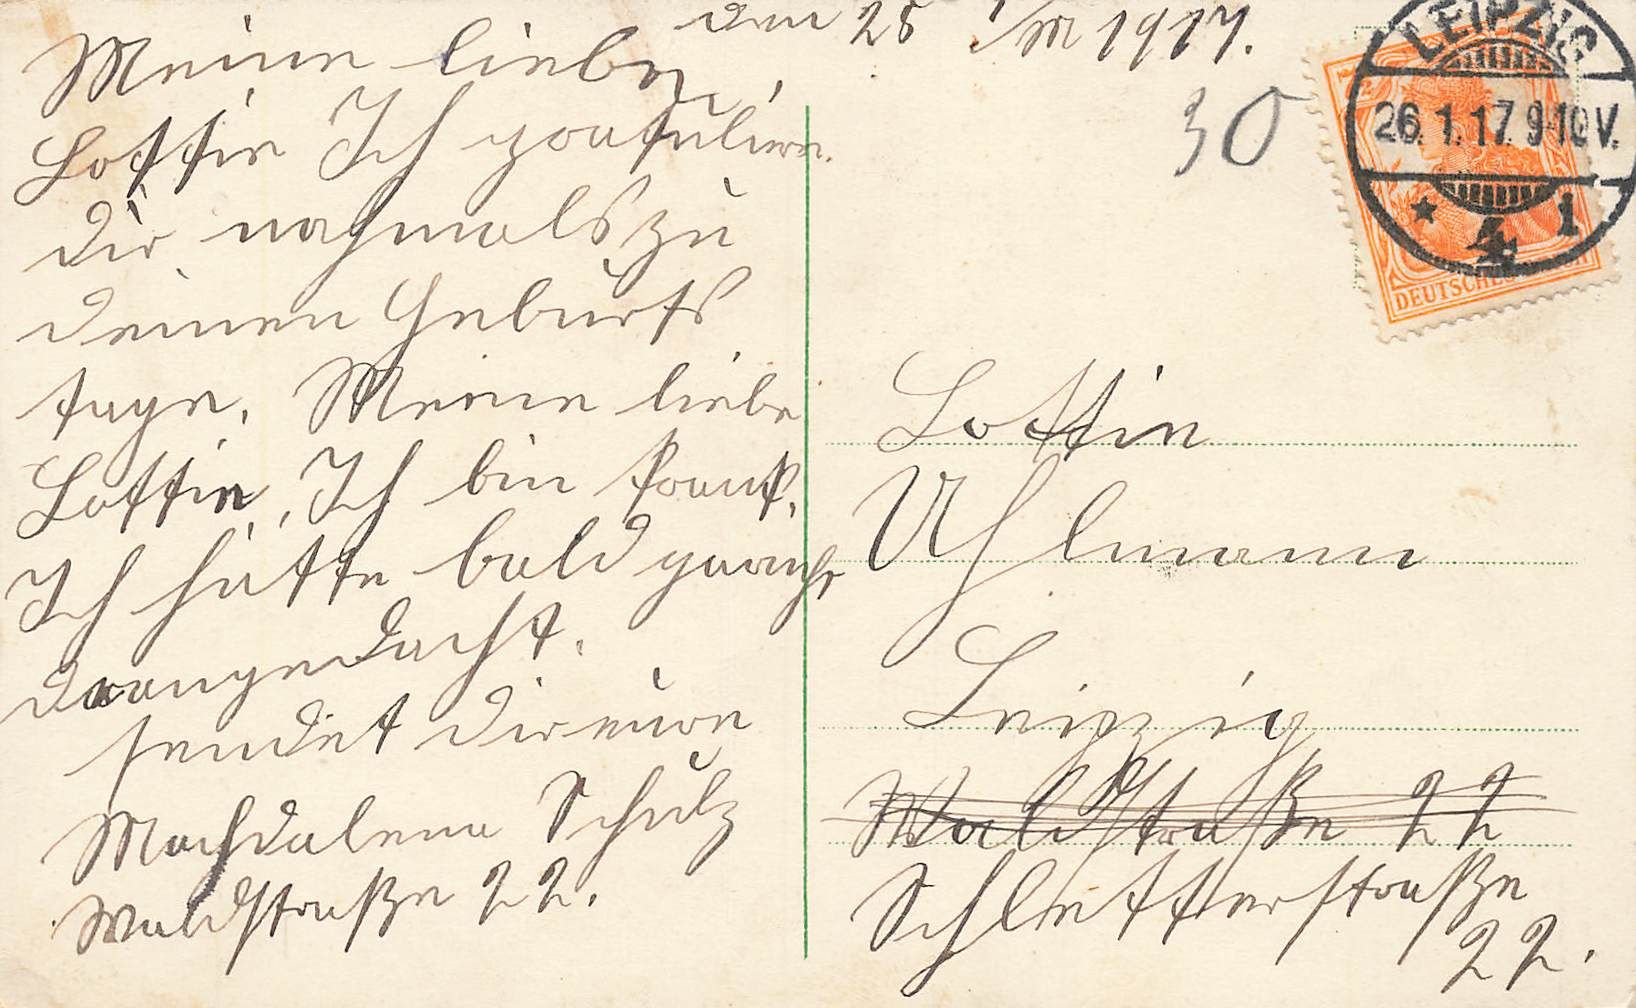 den 25 1/M 1917.
Meine liebe
Lottie Ich gratuliere
dir nachmals zu
deinen Geburts
tage. Meine liebe
Lottie, Ich bin krank.
Ich hätte bald garnicht
drangedacht.
sendet dir eure
Machdalena Schulz
Waldstraße 22.
30
LEIPZIG
26.1.17. 9-10V.
* 4 1
DEUTSCHES
Lottie
Uhlmann
Leipzig
Waldstraße 22
Schletterstraße
22.